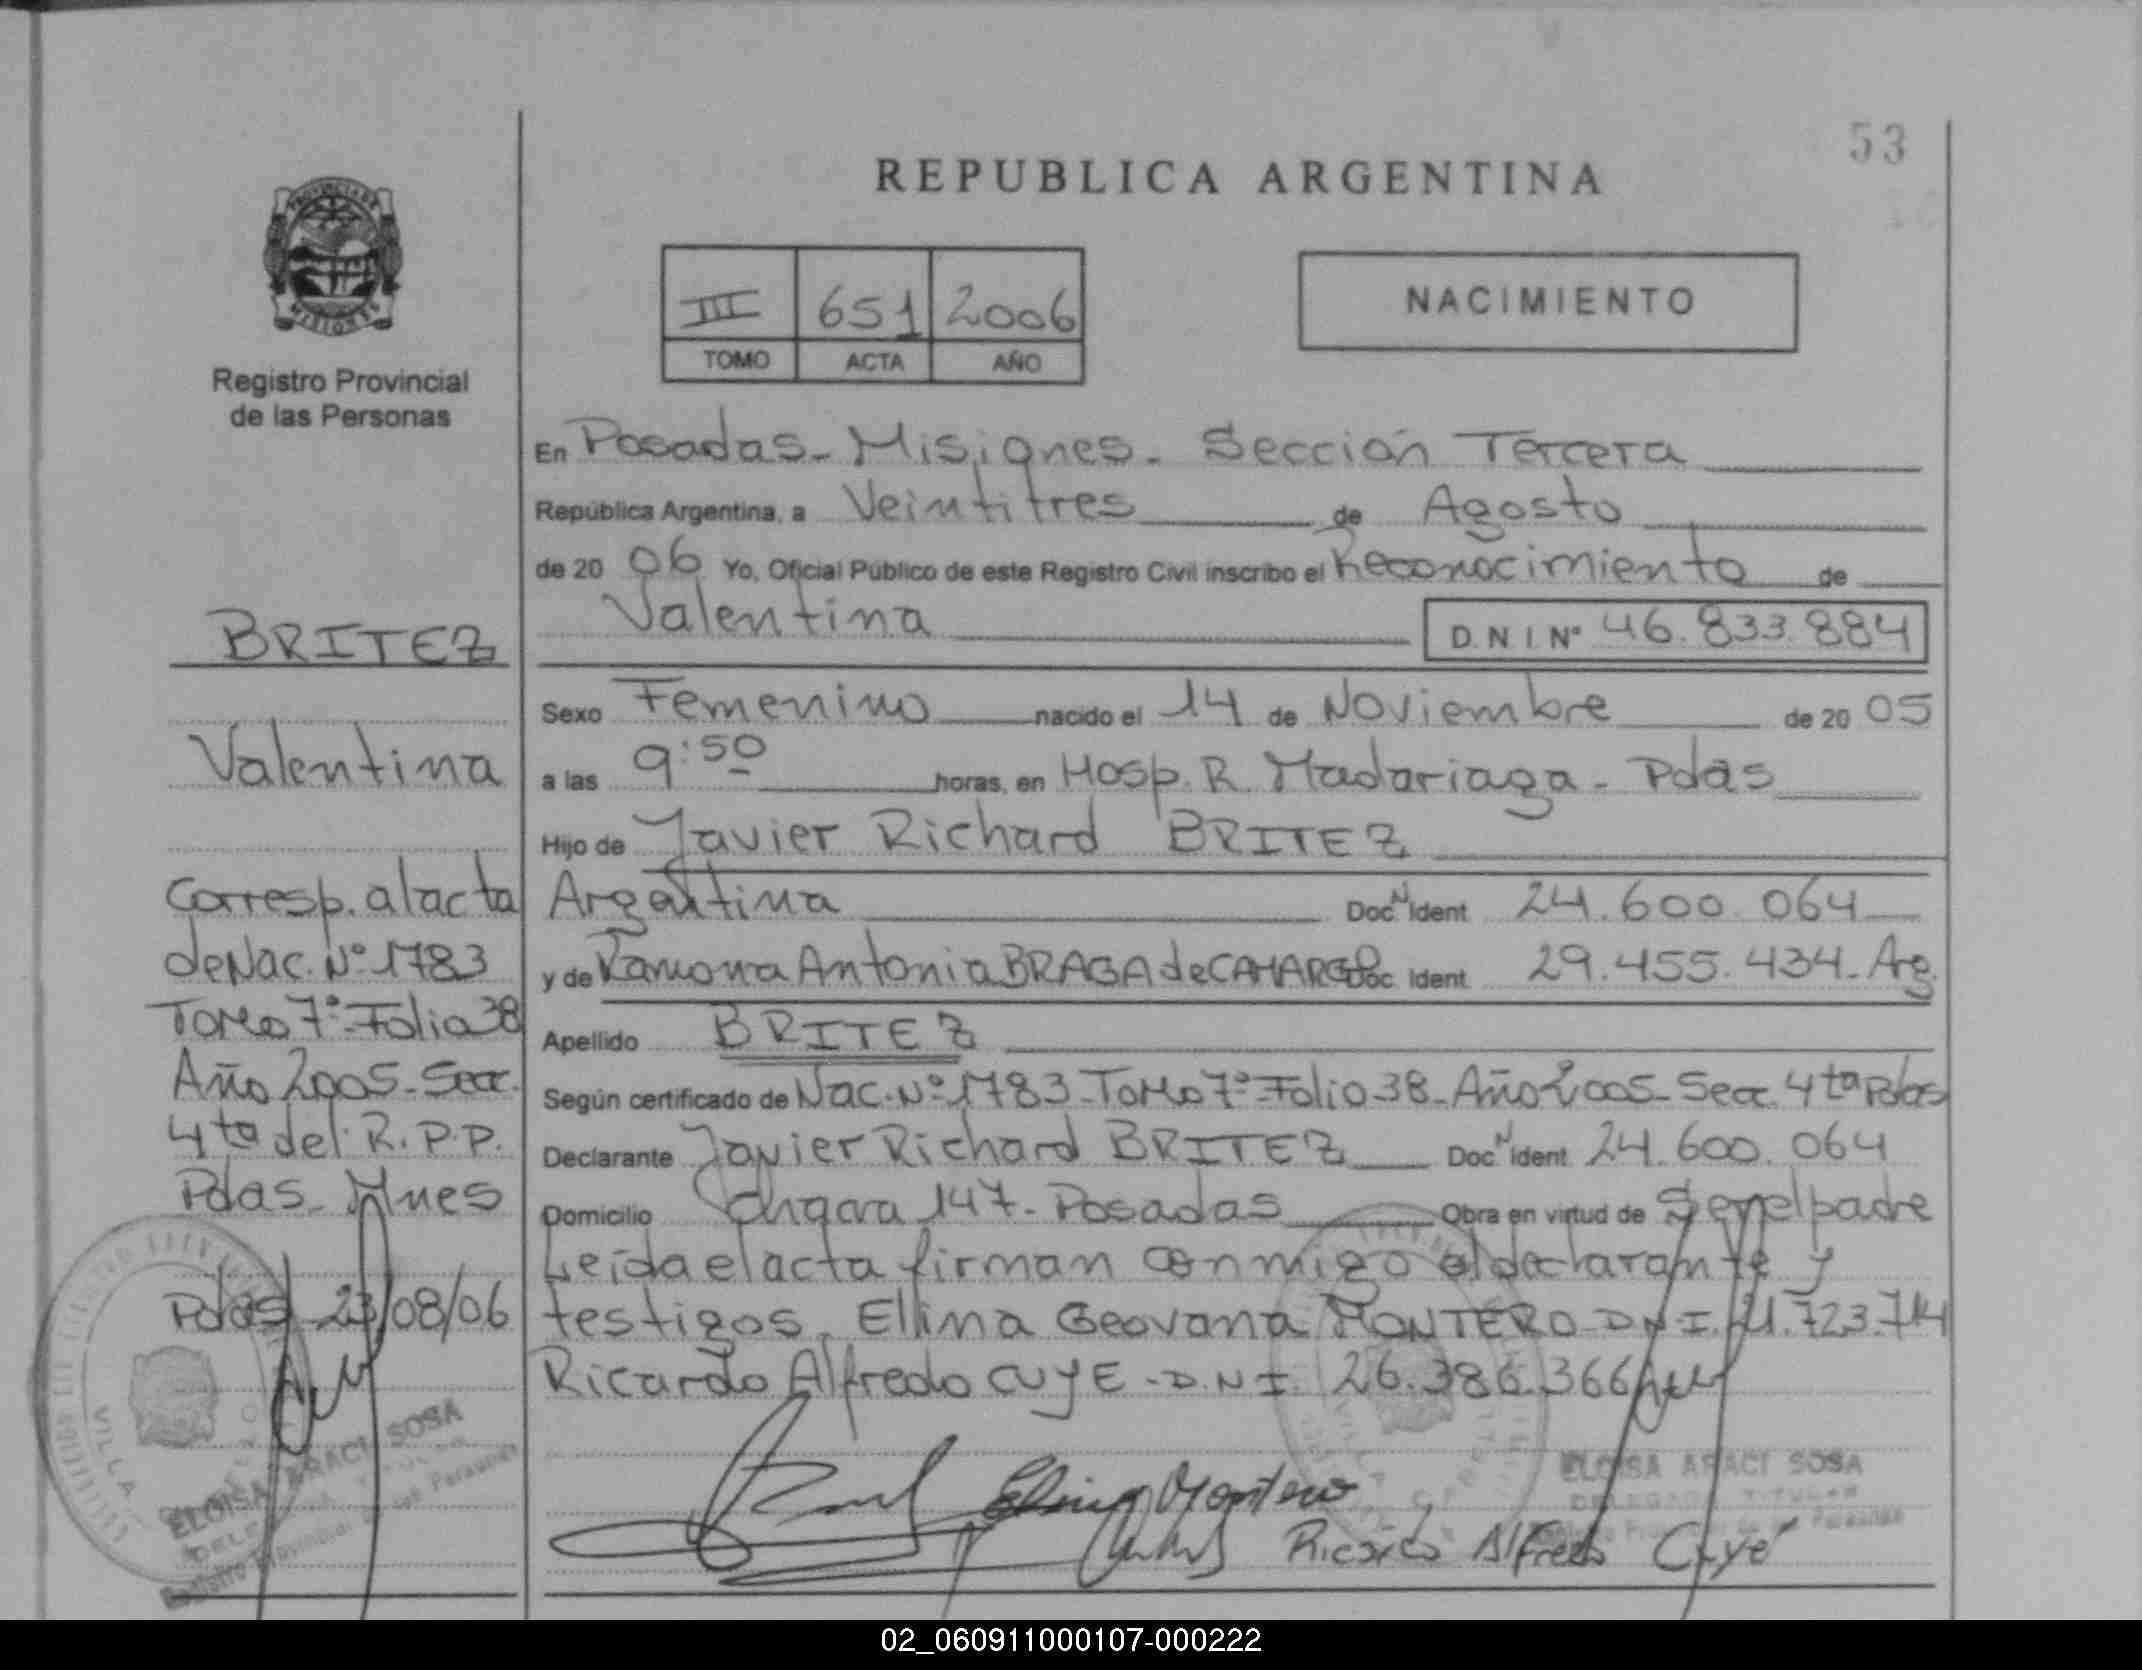 53
REPUBLICA ARGENTINA
PROVINCIA DE
MISIONES
Registro Provincial
de las Personas
III 651 2006
TOMO ACTA AÑO
NACIMIENTO
En Posadas - Misiones - Sección Tercera
República Argentina, a Veintitres de Agosto
de 20 06 Yo, Oficial Público de este Registro Civil inscribo el Reconocimiento de
Valentina D.N.I. Nº 46.833.884
Sexo Femenino nacido el 14 de Noviembre de 20 05
a las 9:50 horas, en Hosp. R. Madariaga - Pdas
Hijo de Javier Richard BRITEZ
Argentina Doc N Ident 24.600.064
y de Ramona Antonia BRAGA de CAMARGO Doc Ident 29.455.434 - Arg.
Apellido BRITEZ
Según certificado de Nac. Nº 1783 - Tomo 7º - Folio 38 - Año 2005 - Secc. 4ta Pdas
Declarante Javier Richard BRITEZ Doc N Ident 24.600.064
Domicilio 147 - Posadas Obra en virtud de Ser el padre
Leída el acta firman conmigo el declarante y
testigos, Ellina Geovana MONTERO - D.N.I. 21.723.714
Ricardo Alfredo CUYE - D.N.I. 26.386.366
BRITEZ
Valentina
Corresp. al acta
de Nac. Nº 1783
Tomo 7º - Folio 38
Año 2005 - Secc.
4ta del R.P.P.
Pdas - Mnes
Pdas 23/08/06
VILLA
ELOISA ARACI SOSA
Registro Provincial de las Personas
Elina Montero
Ricardo Alfredo Cuye
ELOISA ARACI SOSA
DELEGADA TITULAR
Registro Provincial de las Personas
02_060911000107-000222